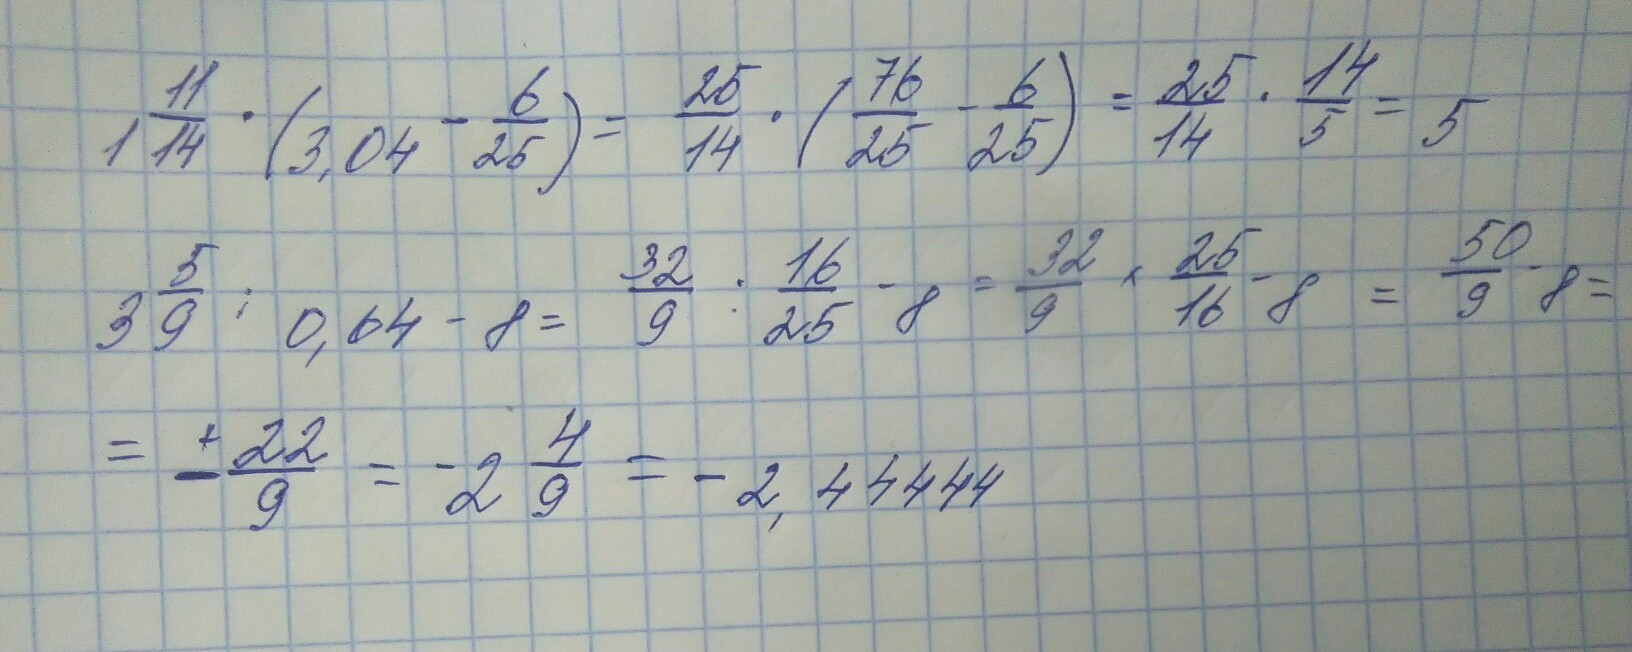 1 11/14 · (3,04 - 6/25) = 25/14 · (76/25 - 6/25) = 25/14 · 14/5 = 5
3 5/9 : 0,64 - 8 = 32/9 : 16/25 - 8 = 32/9 × 25/16 - 8 = 50/9 - 8 =
= - 22/9 = -2 4/9 = -2,44444